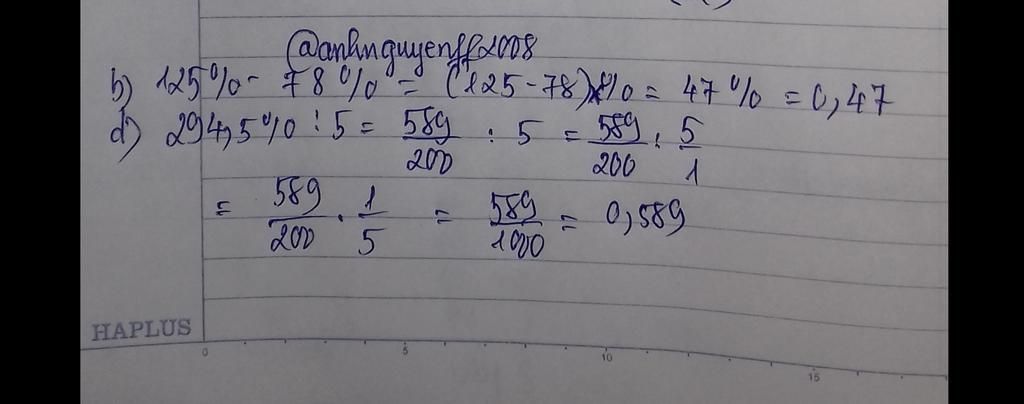 @anhnguyenff2008
b) 125% - 78% = (125-78)% = 47% = 0,47
d) 294,5% : 5 = 589/200 : 5 = 589/200 : 5/1
= 589/200 . 1/5 = 589/1000 = 0,589
HAPLUS
0 5 10 15